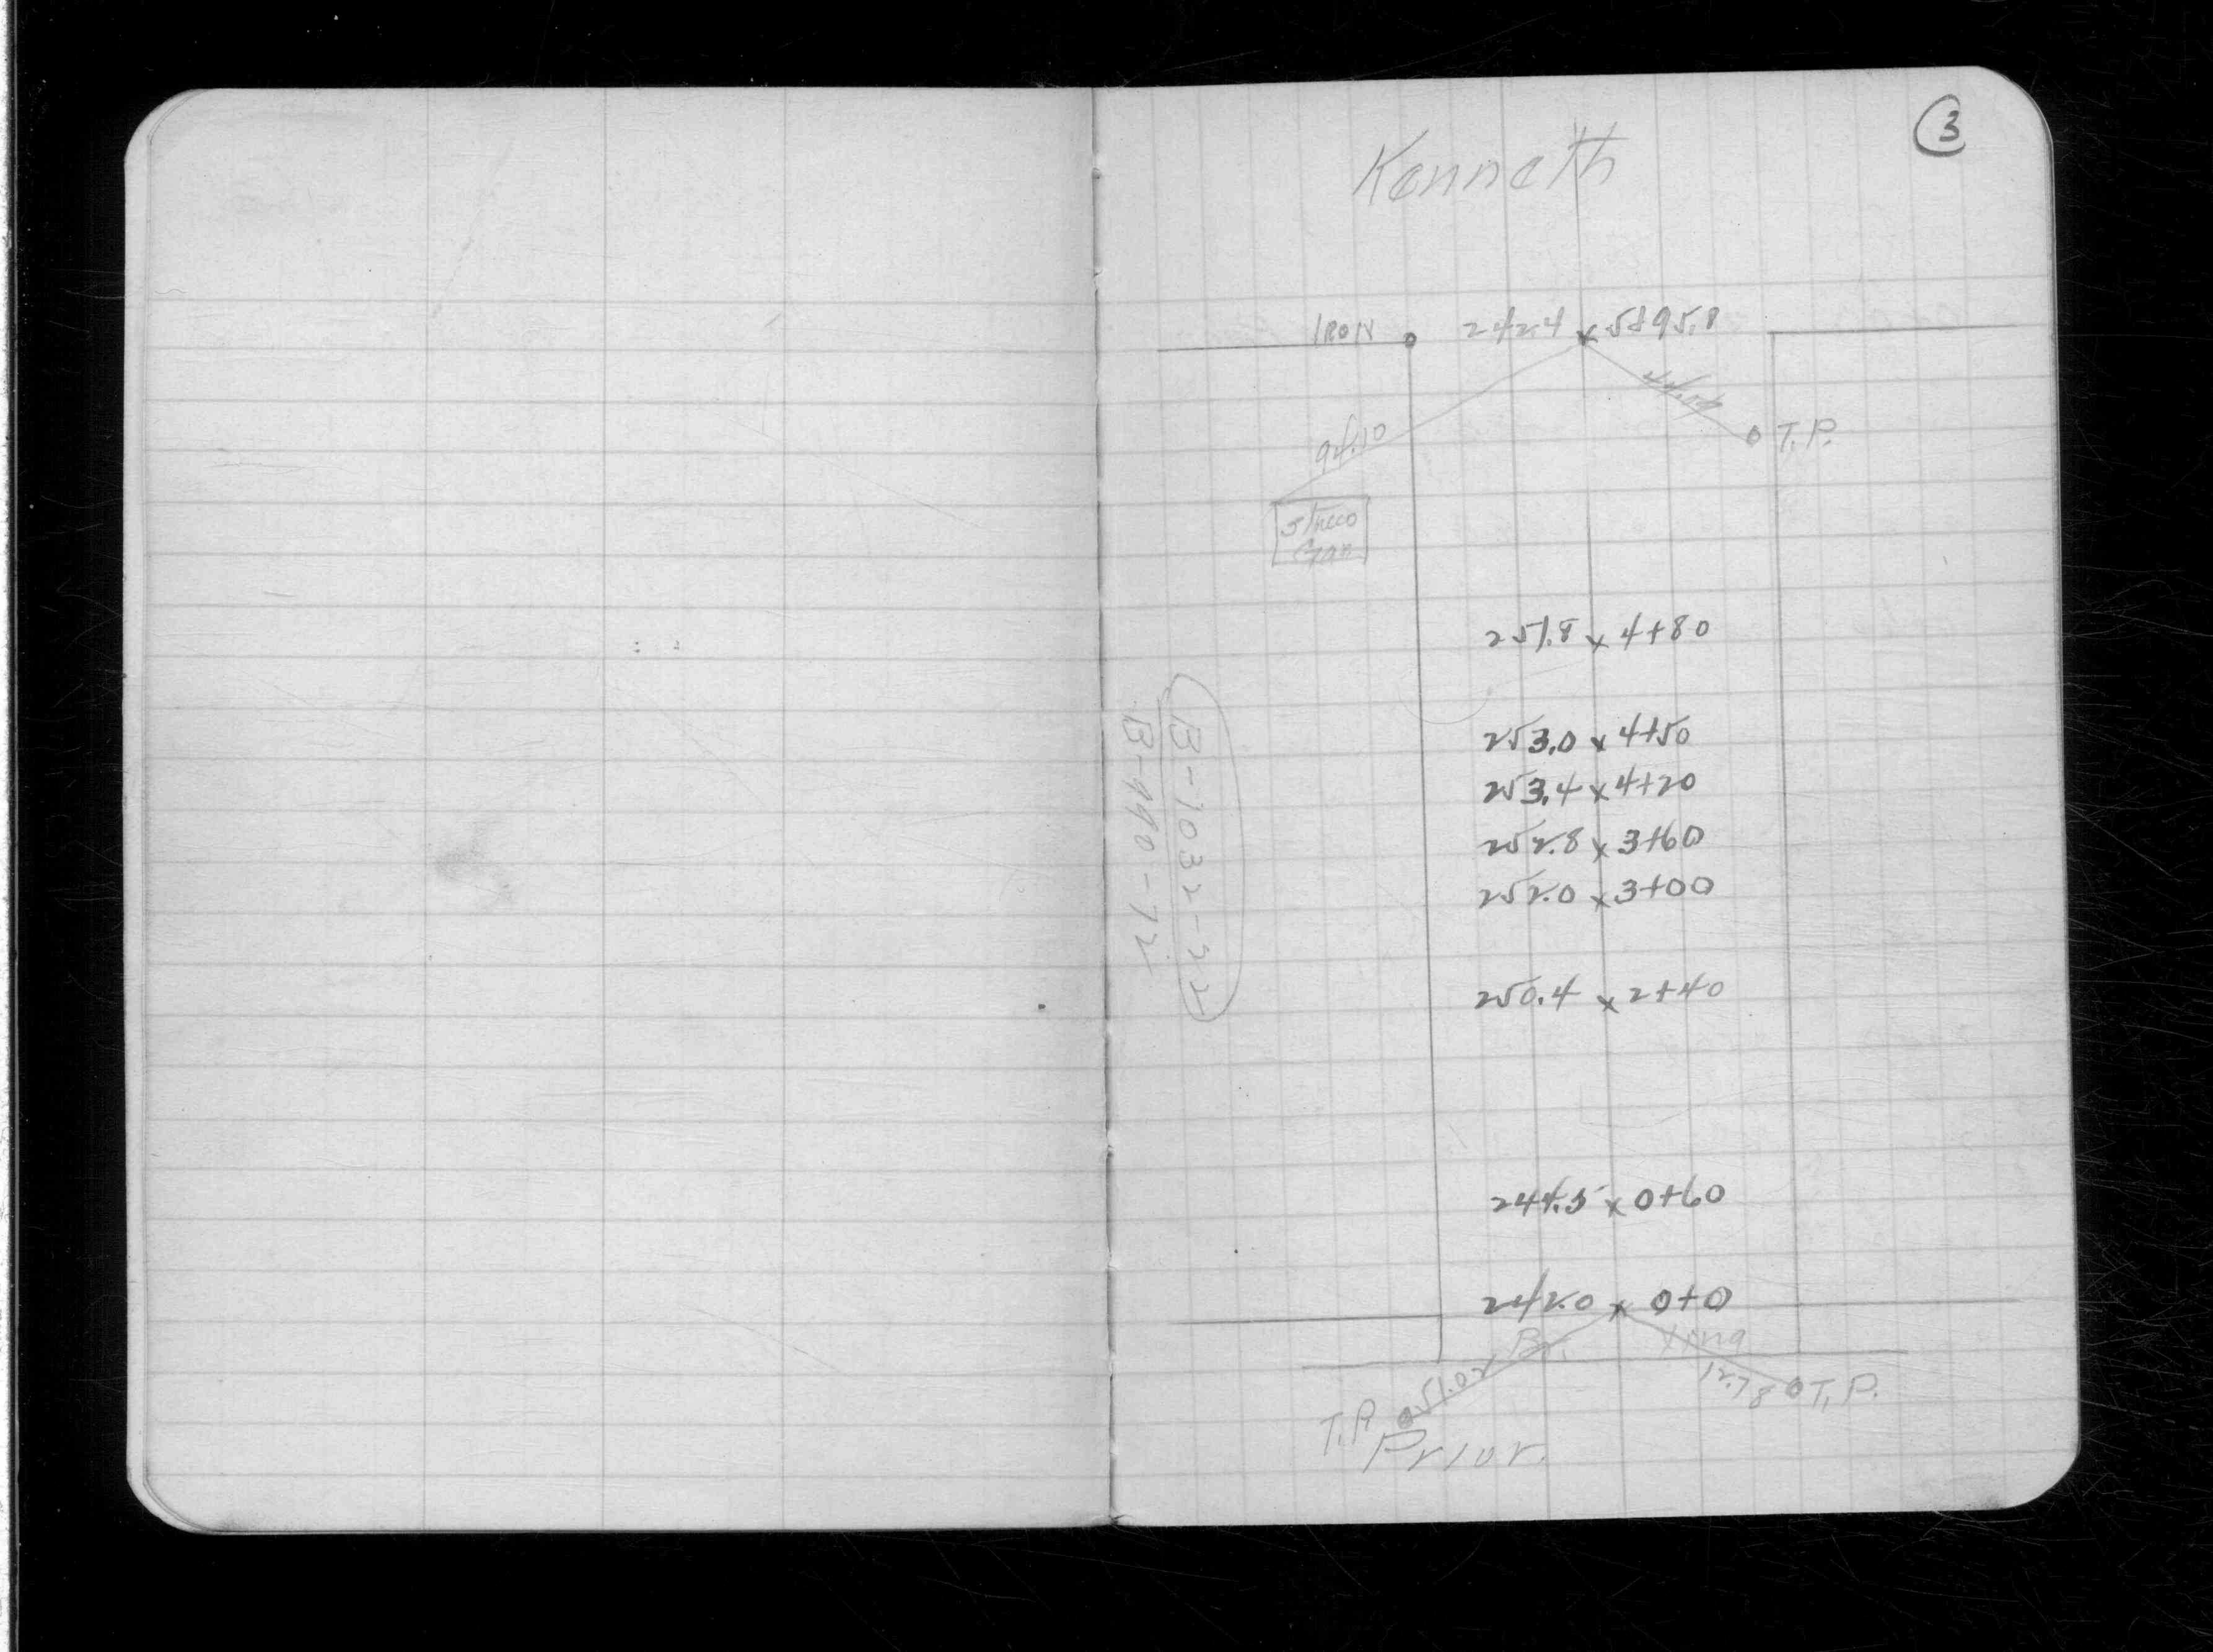 3
Kenneth
IRON 242.4 x 5+95.8
44.09
T.P.
94.10
Stucco
Gar.
251.8 x 4+80
253.0 x 4+50
253.4 x 4+20
252.8 x 3+60
252.0 x 3+00
250.4 x 2+40
244.5 x 0+60
242.0 x 0+0
51.02
12.78
T.P.
T.P.
Prior.
B-1032-32
B-990-72